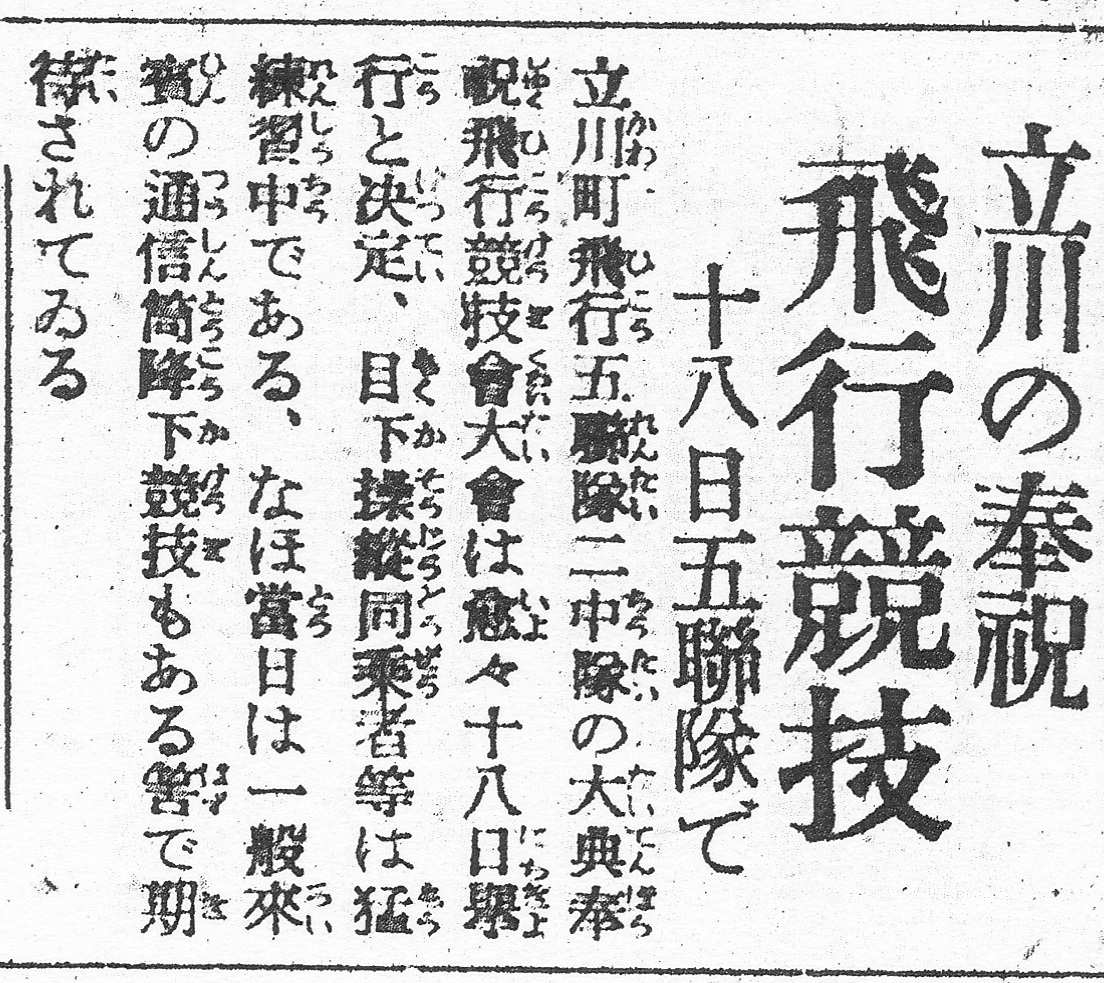 立川の奉祝
飛行競技
十八日五聯隊で
立川町飛行五聯隊二中隊の大典奉
祝飛行競技會大會は愈々十八日擧
行と決定、目下操縱同乘者等は猛
練習中である、なほ當日は一般來
賓の通信筒降下競技もある筈で期
待されてゐる